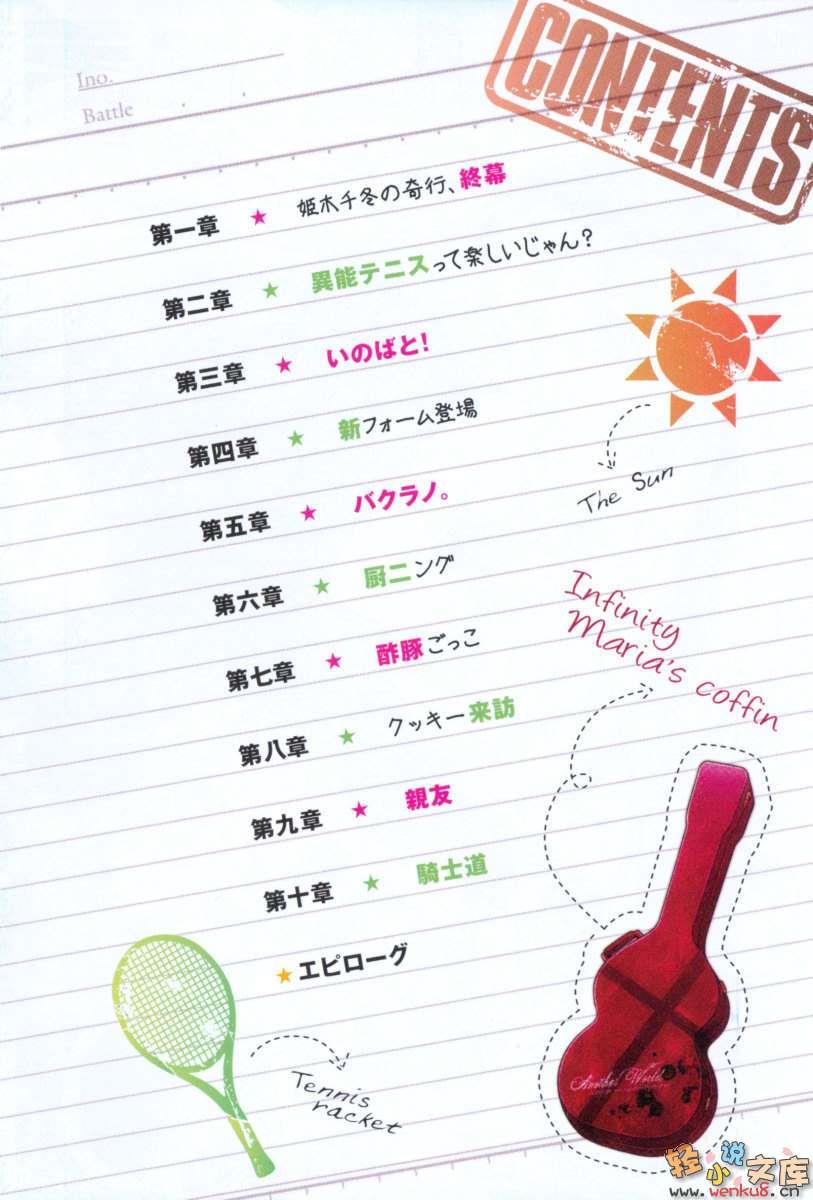 CONTENTS
Ino.
Battle
第一章 ★ 姫木千冬の奇行、終幕
第二章 ★ 異能テニスって楽しいじゃん？
第三章 ★ いのばと！
第四章 ★ 新フォーム登場
第五章 ★ バクラノ。
第六章 ★ 厨二ング
第七章 ★ 酢豚ごっこ
第八章 ★ クッキー来訪
第九章 ★ 親友
第十章 ★ 騎士道
★エピローグ
The Sun
Infinity
Maria's coffin
Tennis
racket
轻小说文库
www.wenku8.cn